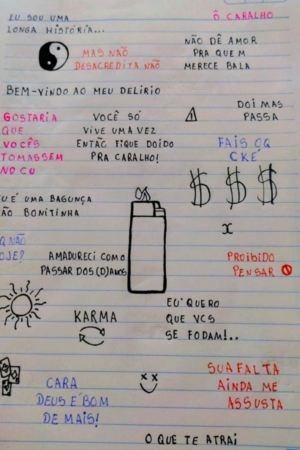 EU SOU UMA
LONGA HISTÓRIA...
Ô CARALHO
MAS NÃO
DESACREDITA NÃO
NÃO DÊ AMOR
PRA QUEM
MERECE BALA
BEM-VINDO AO MEU DELIRIO
DOI MAS
PASSA
GOSTARIA
QUE
VOCÊS
TOMASSEM
NO CU
VOCÊ SÓ
VIVE UMA VEZ
ENTÃO FIQUE DOIDO
PRA CARALHO!
FAIS OQ
CKÉ
$ $ $
É UMA BAGUNÇA
ÃO BONITINHA
x
Q NÃO
OJE?
AMADURECI COMO
PASSAR DOS (D)ANOS
PROIBIDO
PENSAR
KARMA
EU QUERO
QUE VCS
SE FODAM!..
CARA
DEUS É BOM
DE MAIS!
SUA FALTA
AINDA ME
ASSUSTA
O QUE TE ATRAI